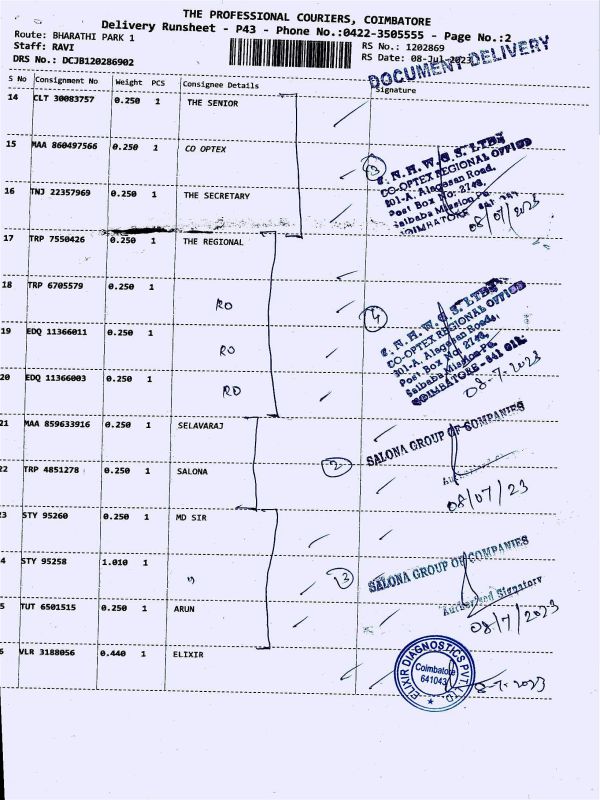 THE PROFESSIONAL COURIERS, COIMBATORE
Delivery Runsheet - P43 - Phone No.:0422-3505555 - Page No.:2
Route: BHARATHI PARK 1
Staff: RAVI
DRS No.: DCJB120286902
RS No.: 1202869
RS Date: 08-Jul-2023
DOCUMENT DELIVERY
S No Consignment No Weight PCS Consignee Details Signature
14 CLT 30083757 0.250 1 THE SENIOR
15 MAA 860497566 0.250 1 CO OPTEX
16 TNJ 22357969 0.250 1 THE SECRETARY
3
CO-OPTEX REGIONAL OFFICE
201-A, Alagesan Road,
Post Box No: 2748,
Saibaba Mission Po.
08/07/2023
17 TRP 7550426 0.250 1 THE REGIONAL
18 TRP 6705579 0.250 1 RO
19 EDQ 11366011 0.250 1 RO
20 EDQ 11366003 0.250 1 RO
4
CO-OPTEX REGIONAL OFFICE
201-A, Alagesan Road,
Post Box No: 2748,
Saibaba Mission Po.
08-7-2023
21 MAA 859633916 0.250 1 SELAVARAJ
22 TRP 4851278 0.250 1 SALONA
2
SALONA GROUP OF COMPANIES
08/07/23
3 STY 95260 0.250 1 MD SIR
4 STY 95258 1.010 1 "
5 TUT 6501515 0.250 1 ARUN
3
SALONA GROUP OF COMPANIES
Authorised Signatory
08/7/2023
6 VLR 3188056 0.440 1 ELIXIR
ELIXIR DIAGNOSTICS PVT. LTD
Coimbatore
641043
8-7-2023